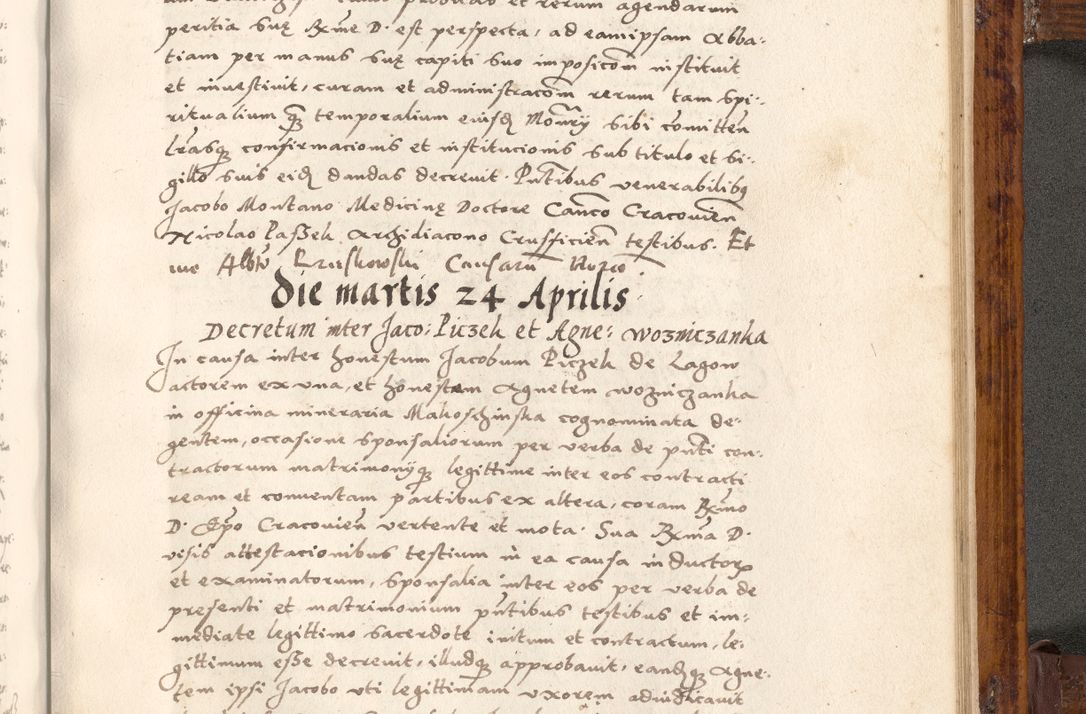 peritia suę Rx̃me D. est perspecta, ad eamipsam Abba-
tiam per manus suę capiti suo imposicom̃ instituit
et inuestiuit, curam et administracom̃ rerum tam spi-
ritualium q̃ȝ temporalium eiusđ Mon̄ry sibi com̄itten̄
lr̃asqȝ confirmacionis et institucionis sub titulo et si-
gillo suis eiđ dandas decreuit. Pn̄tibus venerabilibȝ
Jacobo Montano Medicinę Doctore Can̄co Cracouien̄
Nicolao Paßek Archidiacono Crusficien̄ testibus. Et
me Albt̃o Causarū Not̃io
Die martis 24 Aprilis
Decretum inter Jaco: Piczek et Agne: Wozniczanka
In causa inter honestum Jacobum Piczek de Lagow
actorem ex vna, et honestam Agnetem wozniczanka
in officina mineraria Makoschinska cognominata de-
gentem, occasione sponsaliorum per verba de pn̄ti con-
tractorum matrimonyqȝ legittime inter eos contracti
ream et conuentam partibus ex altera, coram Rx̃mo
D. Ep̃o Cracouien̄ vertente et mota. Sua Rx̃ma D.
visis attestacionibus testium in ea causa inductorꝝ
et examinatorum, sponsalia inter eos per verba de
presenti et matrimonium pn̄tibus testibus et im-
mediate legittimo sacerdote initum et contractum, le-
gittimum eße decreuit, illudqȝ approbauit, eandqȝ Agne-
tem ipsi Jacobo vti legittimam vxorem adiudicauit